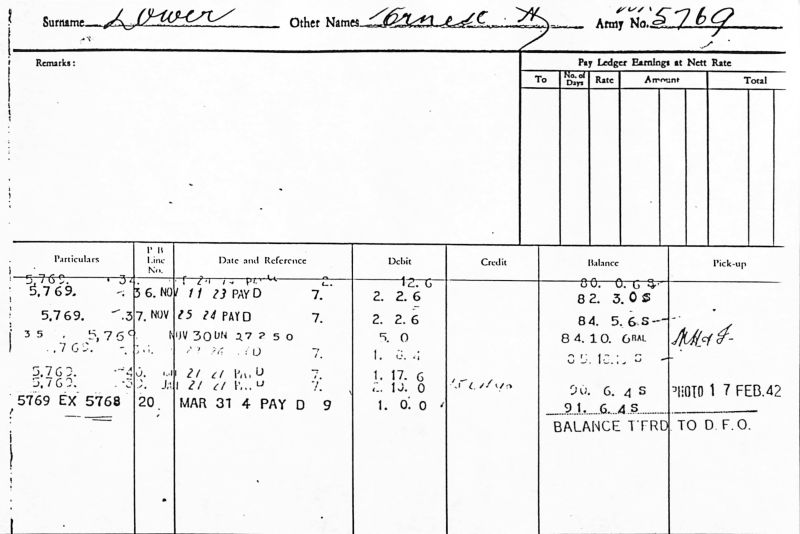 Surname Lower Other Names Ernest A Army No. 5769
Remarks:
Pay Ledger Earnings at Nett Rate
To No. of Days Rate Amount Total
Particulars P B Line No. Date and Reference Debit Credit Balance Pick-up
5,769. 12.6 80. 0.6 S
5,769. 36. NOV 11 23 PAY D 7. 2. 2.6 82. 3.0 S
5,769. 37. NOV 25 24 PAY D 7. 2. 2.6 84. 5.6 S
35 5,769 NOV 30 UN 27250 5.0 84.10. 6 BAL
769. 7. 1.
5,769. 21 21 7. 1. 17. 6
5,769. 21 21 7. 0 90. 6. 4 S PHOTO 17 FEB.42
5769 EX 5768 20 MAR 31 4 PAY D 9 1. 0. 0 91. 6. 4 S
BALANCE T'FRD TO D.F.O.